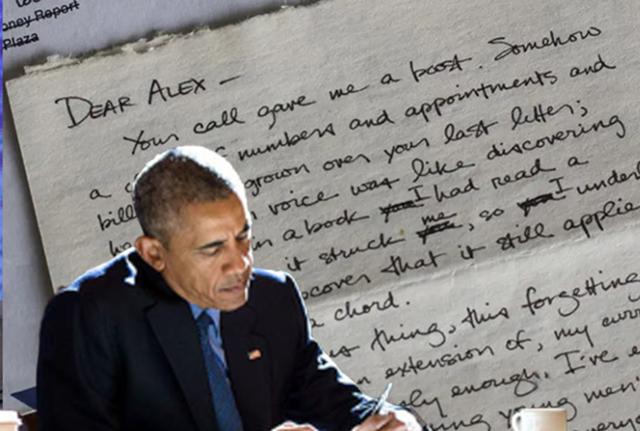 oney Report
Plaza
DEAR ALEX —
Your call gave me a boost. Somehow
a numbers and appointments and
bill grown over your last letter;
voice was like discovering
in a book I had read a
it struck me, so I underl
cover that it still applie
a chord.
thing, this forgetting
extension of, my curr
ly enough. I've e
young men